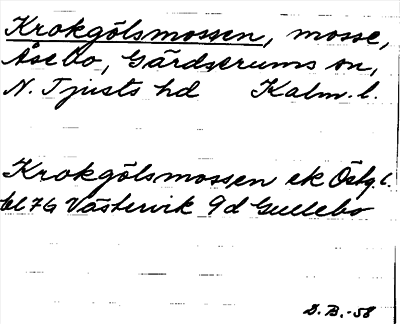 Krokgölsmossen, mosse,
Åsebo, Gärdserums sn,
N. Tjusts hd Kalm. l.
Krokgölsmossen ek Östg. l.
bl 7G Västervik 9d Gullebo
D. B. -58